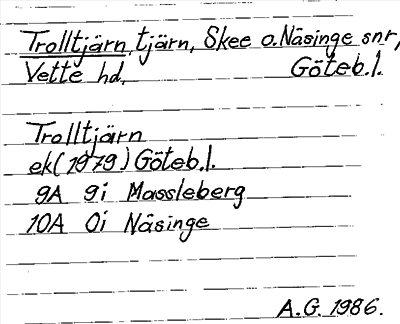 Trolltjärn, tjärn, Skee o. Näsinge snr,
Vette hd. Göteb.l.
Trolltjärn
ek(1979) Göteb.l.
9A 9i Massleberg
10A 0i Näsinge
A.G. 1986.